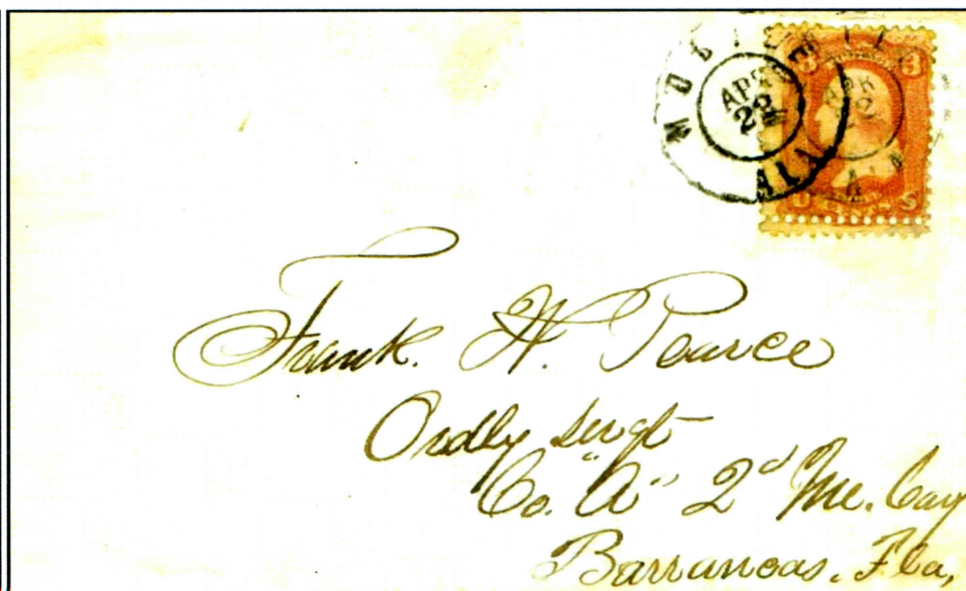 MOBILE
APR
22
ALA
3 3
U S
Frank. H. Pearce
Ordly Sergt
Co. "A" 2d Me. Cav
Barrancas, Fla,